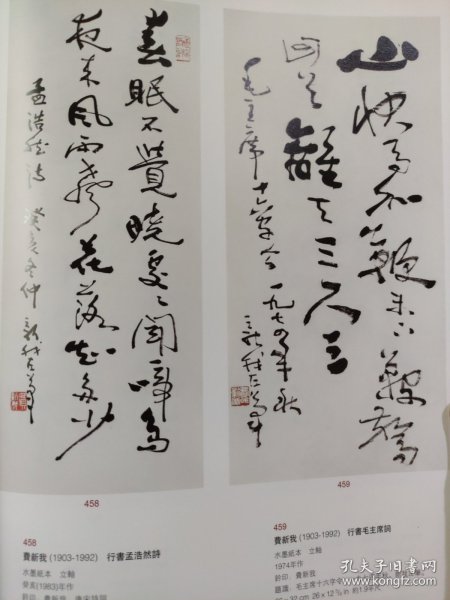 春眠不覺曉處處聞啼鳥
夜來風雨聲花落知多少
孟浩然詩 癸亥冬仲 新我左筆
458
山快馬加鞭未下鞍驚
回首離天三尺三
毛主席十六字令 一九七四年秋
新我左筆
459
458
費新我 (1903-1992) 行書孟浩然詩
水墨紙本 立軸
癸亥(1983)年作
鈐印:費新我
459
費新我 (1903-1992) 行書毛主席詞
水墨紙本 立軸
1974年作
鈐印:費新我
題識:毛主席十六字令
孔夫子旧书网